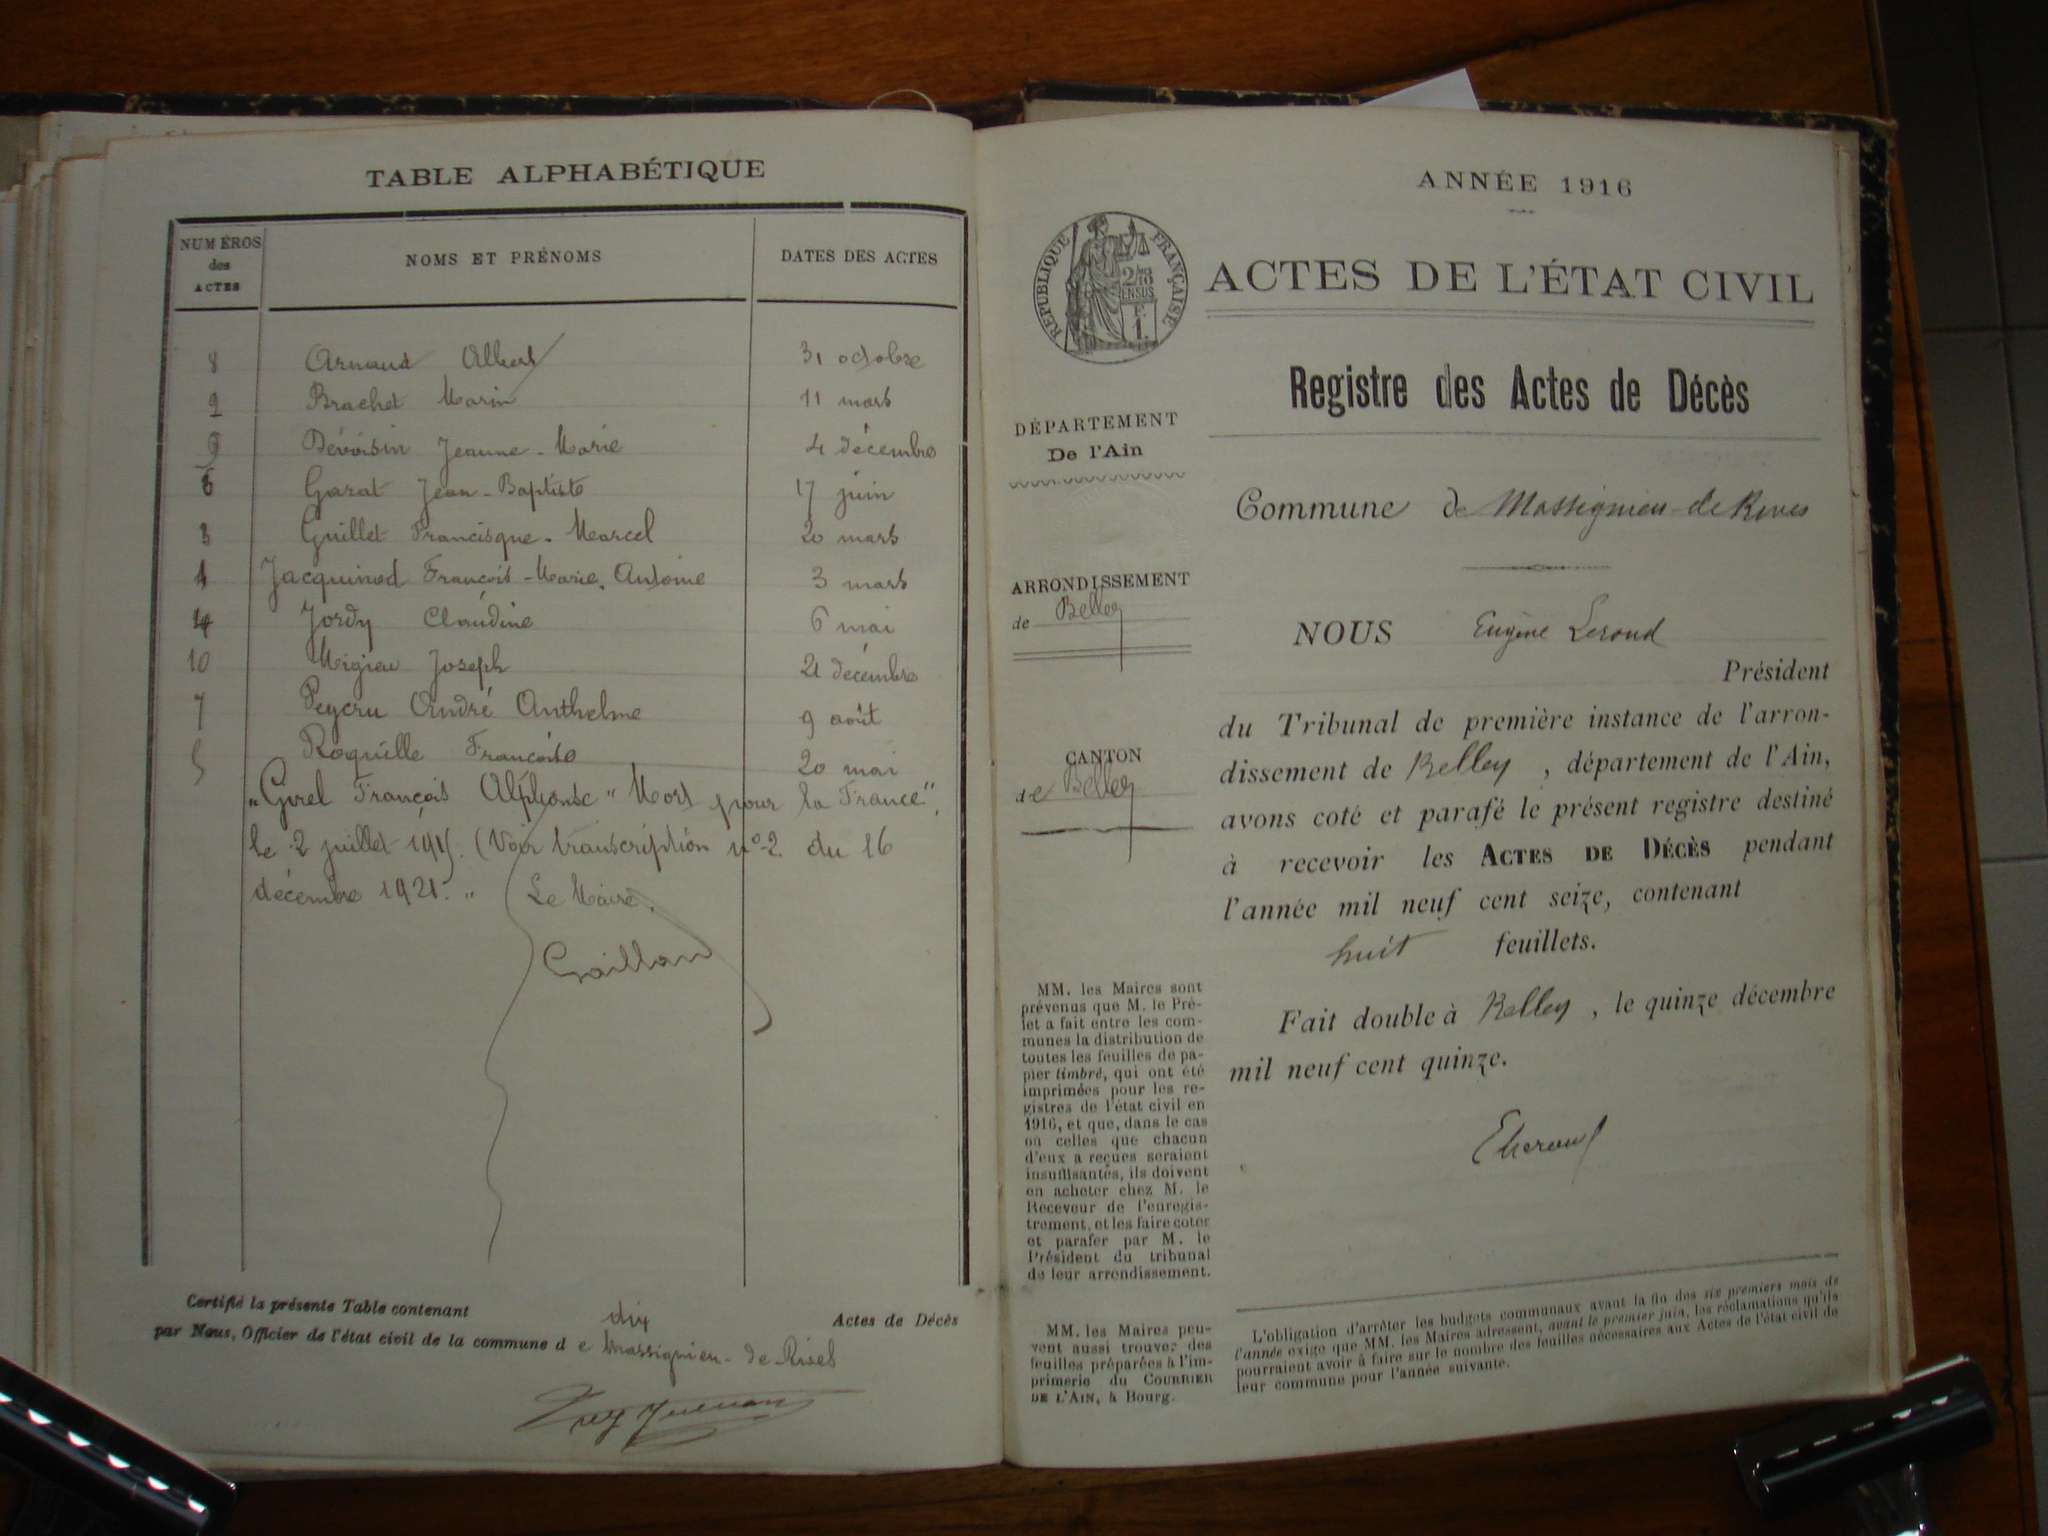 TABLE ALPHABÉTIQUE
NUMÉROS
des
ACTES
NOMS ET PRÉNOMS
DATES DES ACTES
8 Arnaud Albert 31 octobre
2 Brachet Marin 11 mars
9 Dévoisin Jeanne-Marie 4 décembre
6 Garat Jean-Baptiste 17 juin
3 Guillet Francisque-Marcel 20 mars
1 Jacquinod François-Marie-Antoine 3 mars
4 Jordy Claudine 6 mai
10 Migieu Joseph 21 décembre
7 Peycru André Anthelme 9 août
5 Roquille Françoise 20 mai
"Girel François Alphonse "Mort pour la France",
le 2 juillet 1915. (Voir transcription nº 2 du 16
décembre 1921. " Le Maire.
Gaillon
Certifié la présente Table contenant dix Actes de Décès
par Nous, Officier de l'état civil de la commune d e Massignieu-de-Rives
ANNÉE 1916
RÉPUBLIQUE FRANÇAISE
2/10
EN SUS
F.
1.
ACTES DE L'ÉTAT CIVIL
Registre des Actes de Décès
DÉPARTEMENT
De l'Ain
Commune de Massignieu-de-Rives
ARRONDISSEMENT
de Belley
NOUS Eugène Leroud
Président
du Tribunal de première instance de l'arron-
dissement de Belley, département de l'Ain,
avons coté et parafé le présent registre destiné
à recevoir les ACTES DE DÉCÈS pendant
l'année mil neuf cent seize, contenant
huit feuillets.
CANTON
de Belley
Fait double à Belley, le quinze décembre
mil neuf cent quinze.
ELeroud
MM. les Maires sont
prévenus que M. le Pré-
fet a fait entre les com-
munes la distribution de
toutes les feuilles de pa-
pier timbré, qui ont été
imprimées pour les re-
gistres de l'état civil en
1916, et que, dans le cas
où celles que chacun
d'eux a reçues seraient
insuffisantes, ils doivent
en acheter chez M. le
Receveur de l'enregis-
trement, et les faire coter
et parafer par M. le
Président du tribunal
de leur arrondissement.
MM. les Maires peu-
vent aussi trouver des
feuilles préparées à l'im-
primerie du COURRIER
DE L'AIN, à Bourg.
L'obligation d'arrêter les budgets communaux avant la fin des six premiers mois de
l'année exige que MM. les Maires adressent, avant le premier juin, les réclamations qu'ils
pourraient avoir à faire sur le nombre des feuilles nécessaires aux Actes de l'état civil de
leur commune pour l'année suivante.